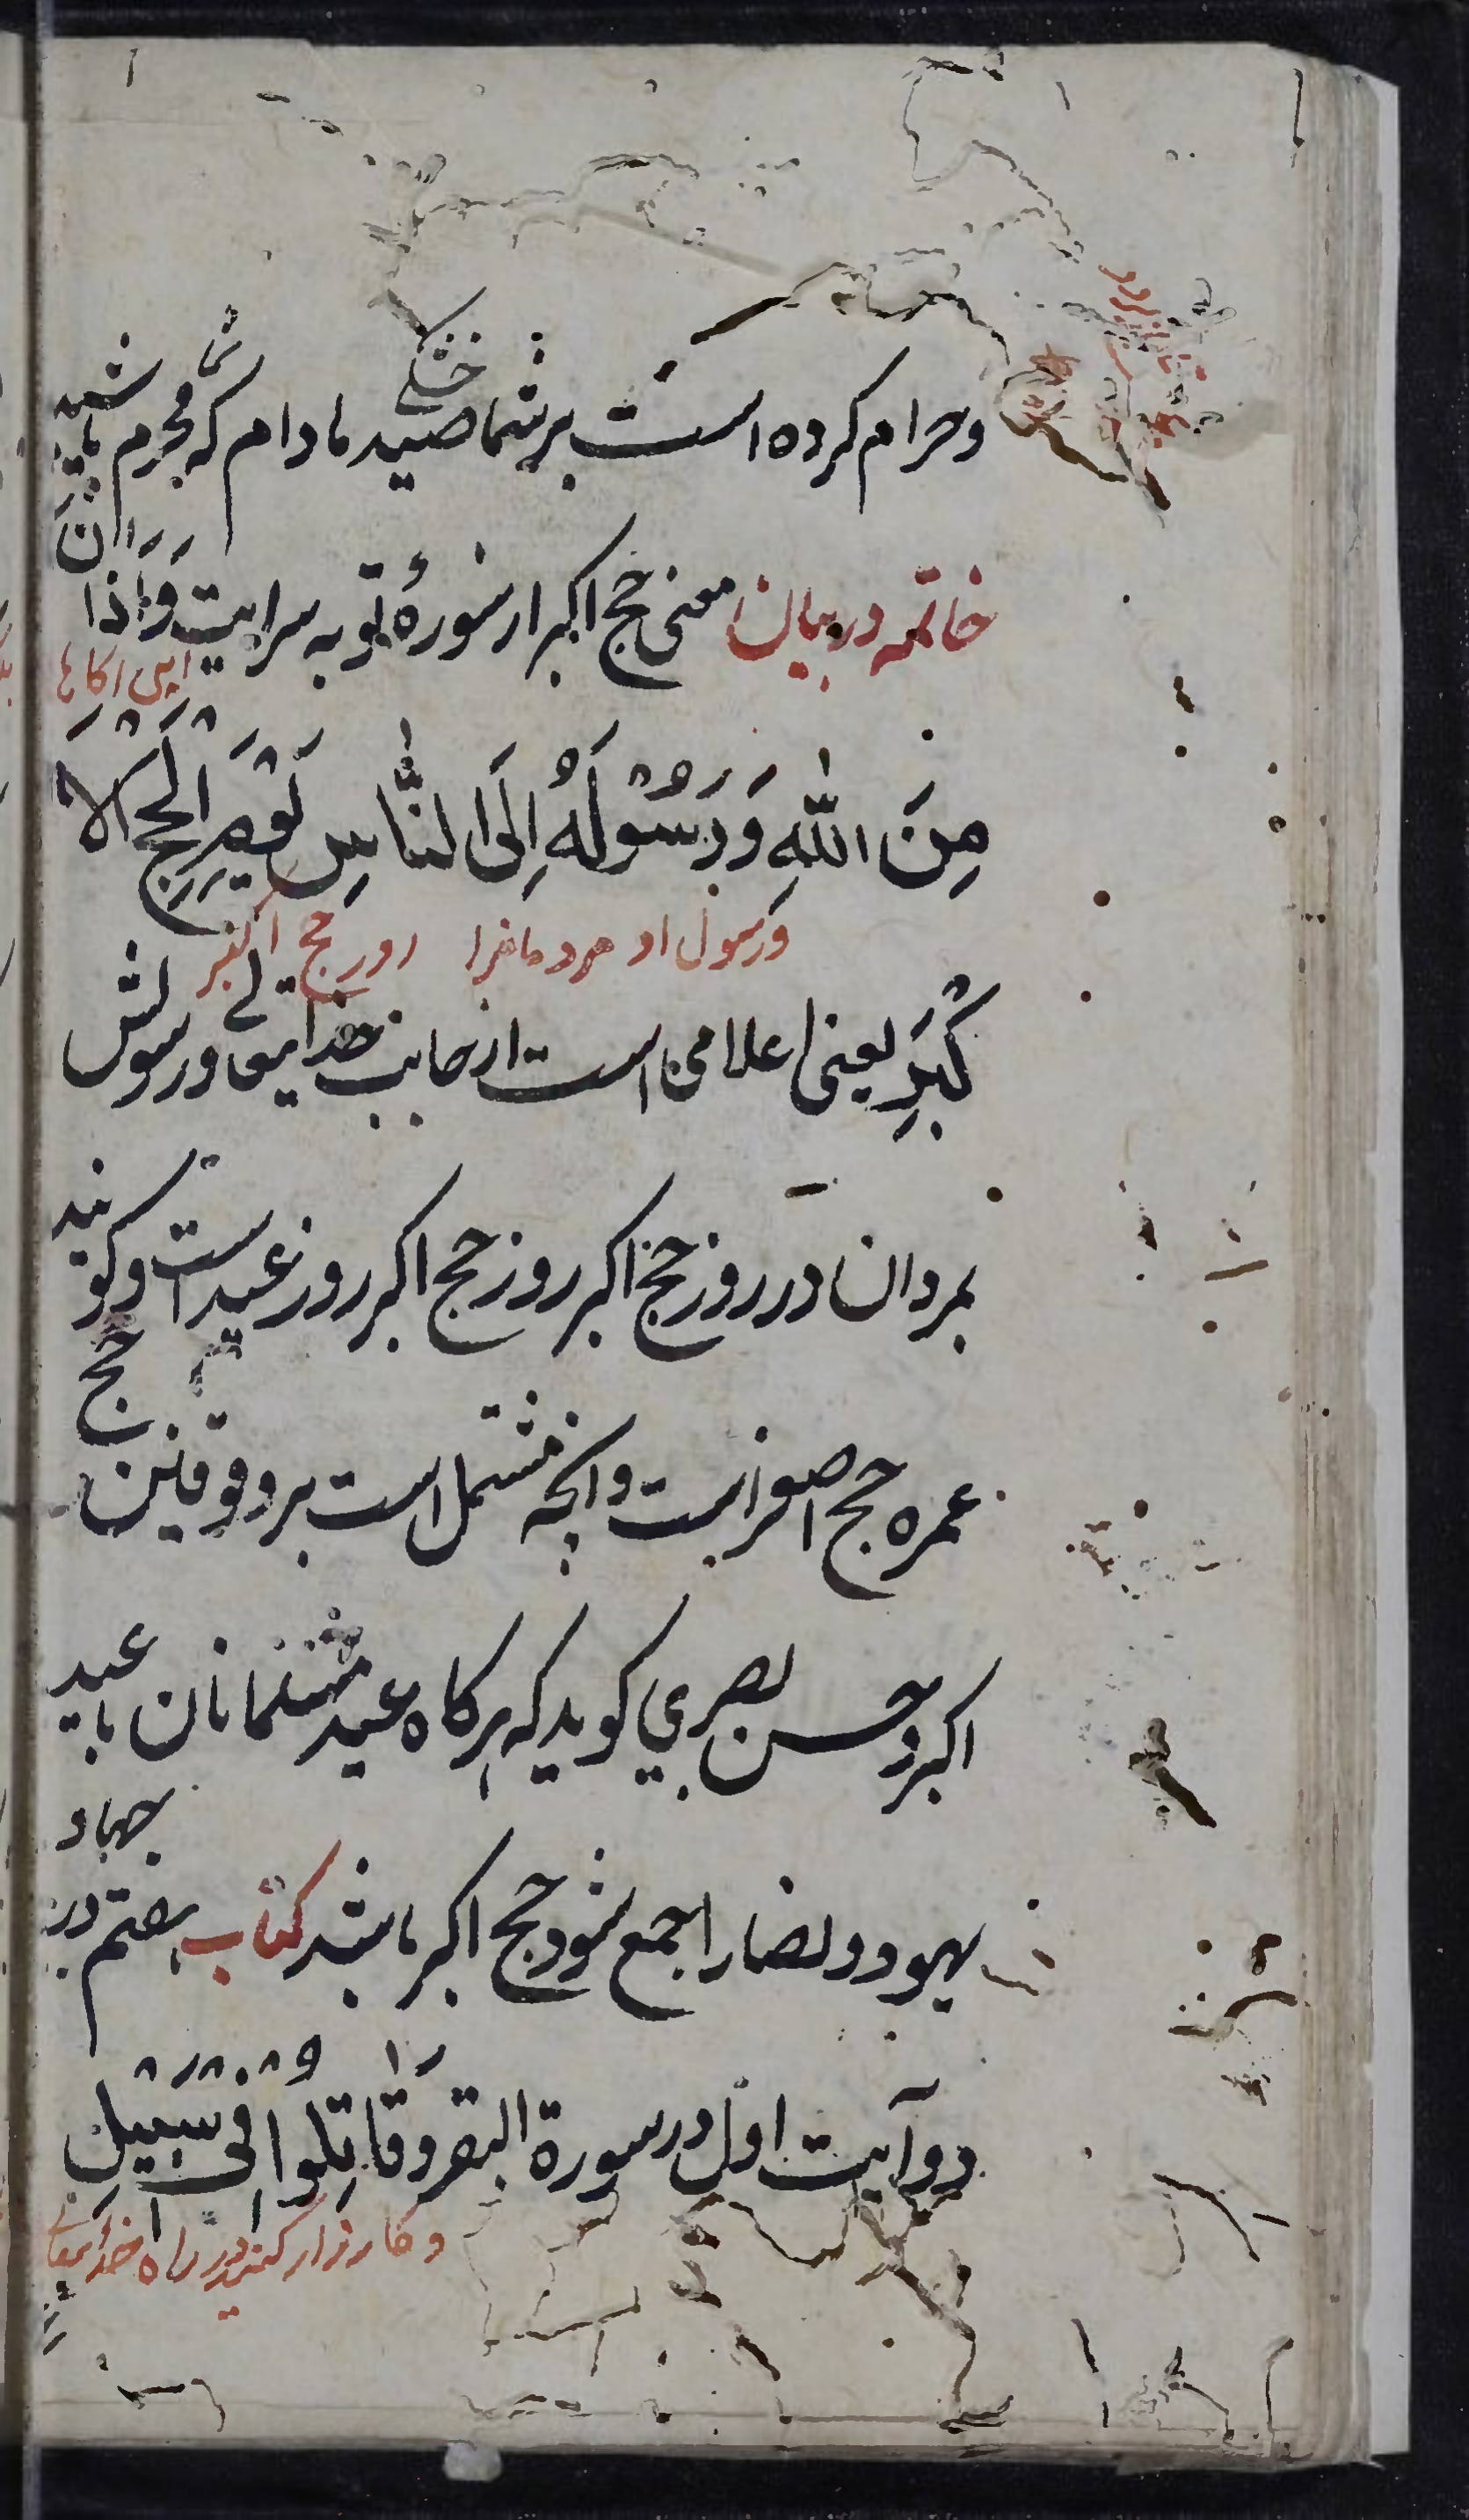 وحرام کرده است بر شما صید خشکی مادام که شما محرم باشید
خاتمه در بیان معنی حج اکبر از سورهٔ توبه سرایت وَاَذَانٌ
این آگاها
مِنَ اللّٰهِ وَرَسُوْلِهُ اِلَی النَّاسِ یَوْمَ الْحَجِّ الْاَ
ورسول او مردمانرا روز حج اکبر
کْبَرِ یعنی اعلامی است از جانب خدایتعالی ورسولش
بمردان در روز حج اکبر روز حج اکبر روز عید است وکویند
عمره حج اصغر است وانچه مشتمل است بر وقوفین حج
اکبر وحسن بصری کوید که هرکاه عید مسلمانان با عید
یهود ونصارا جمع شود حج اکبر باشد کتاب هفتم در جهاد
دو آیت اول در سورة البقر وَقَاتِلُوْا فِیْ سَبِیْلِ
وکارزار کنید در راه خدایتعالی